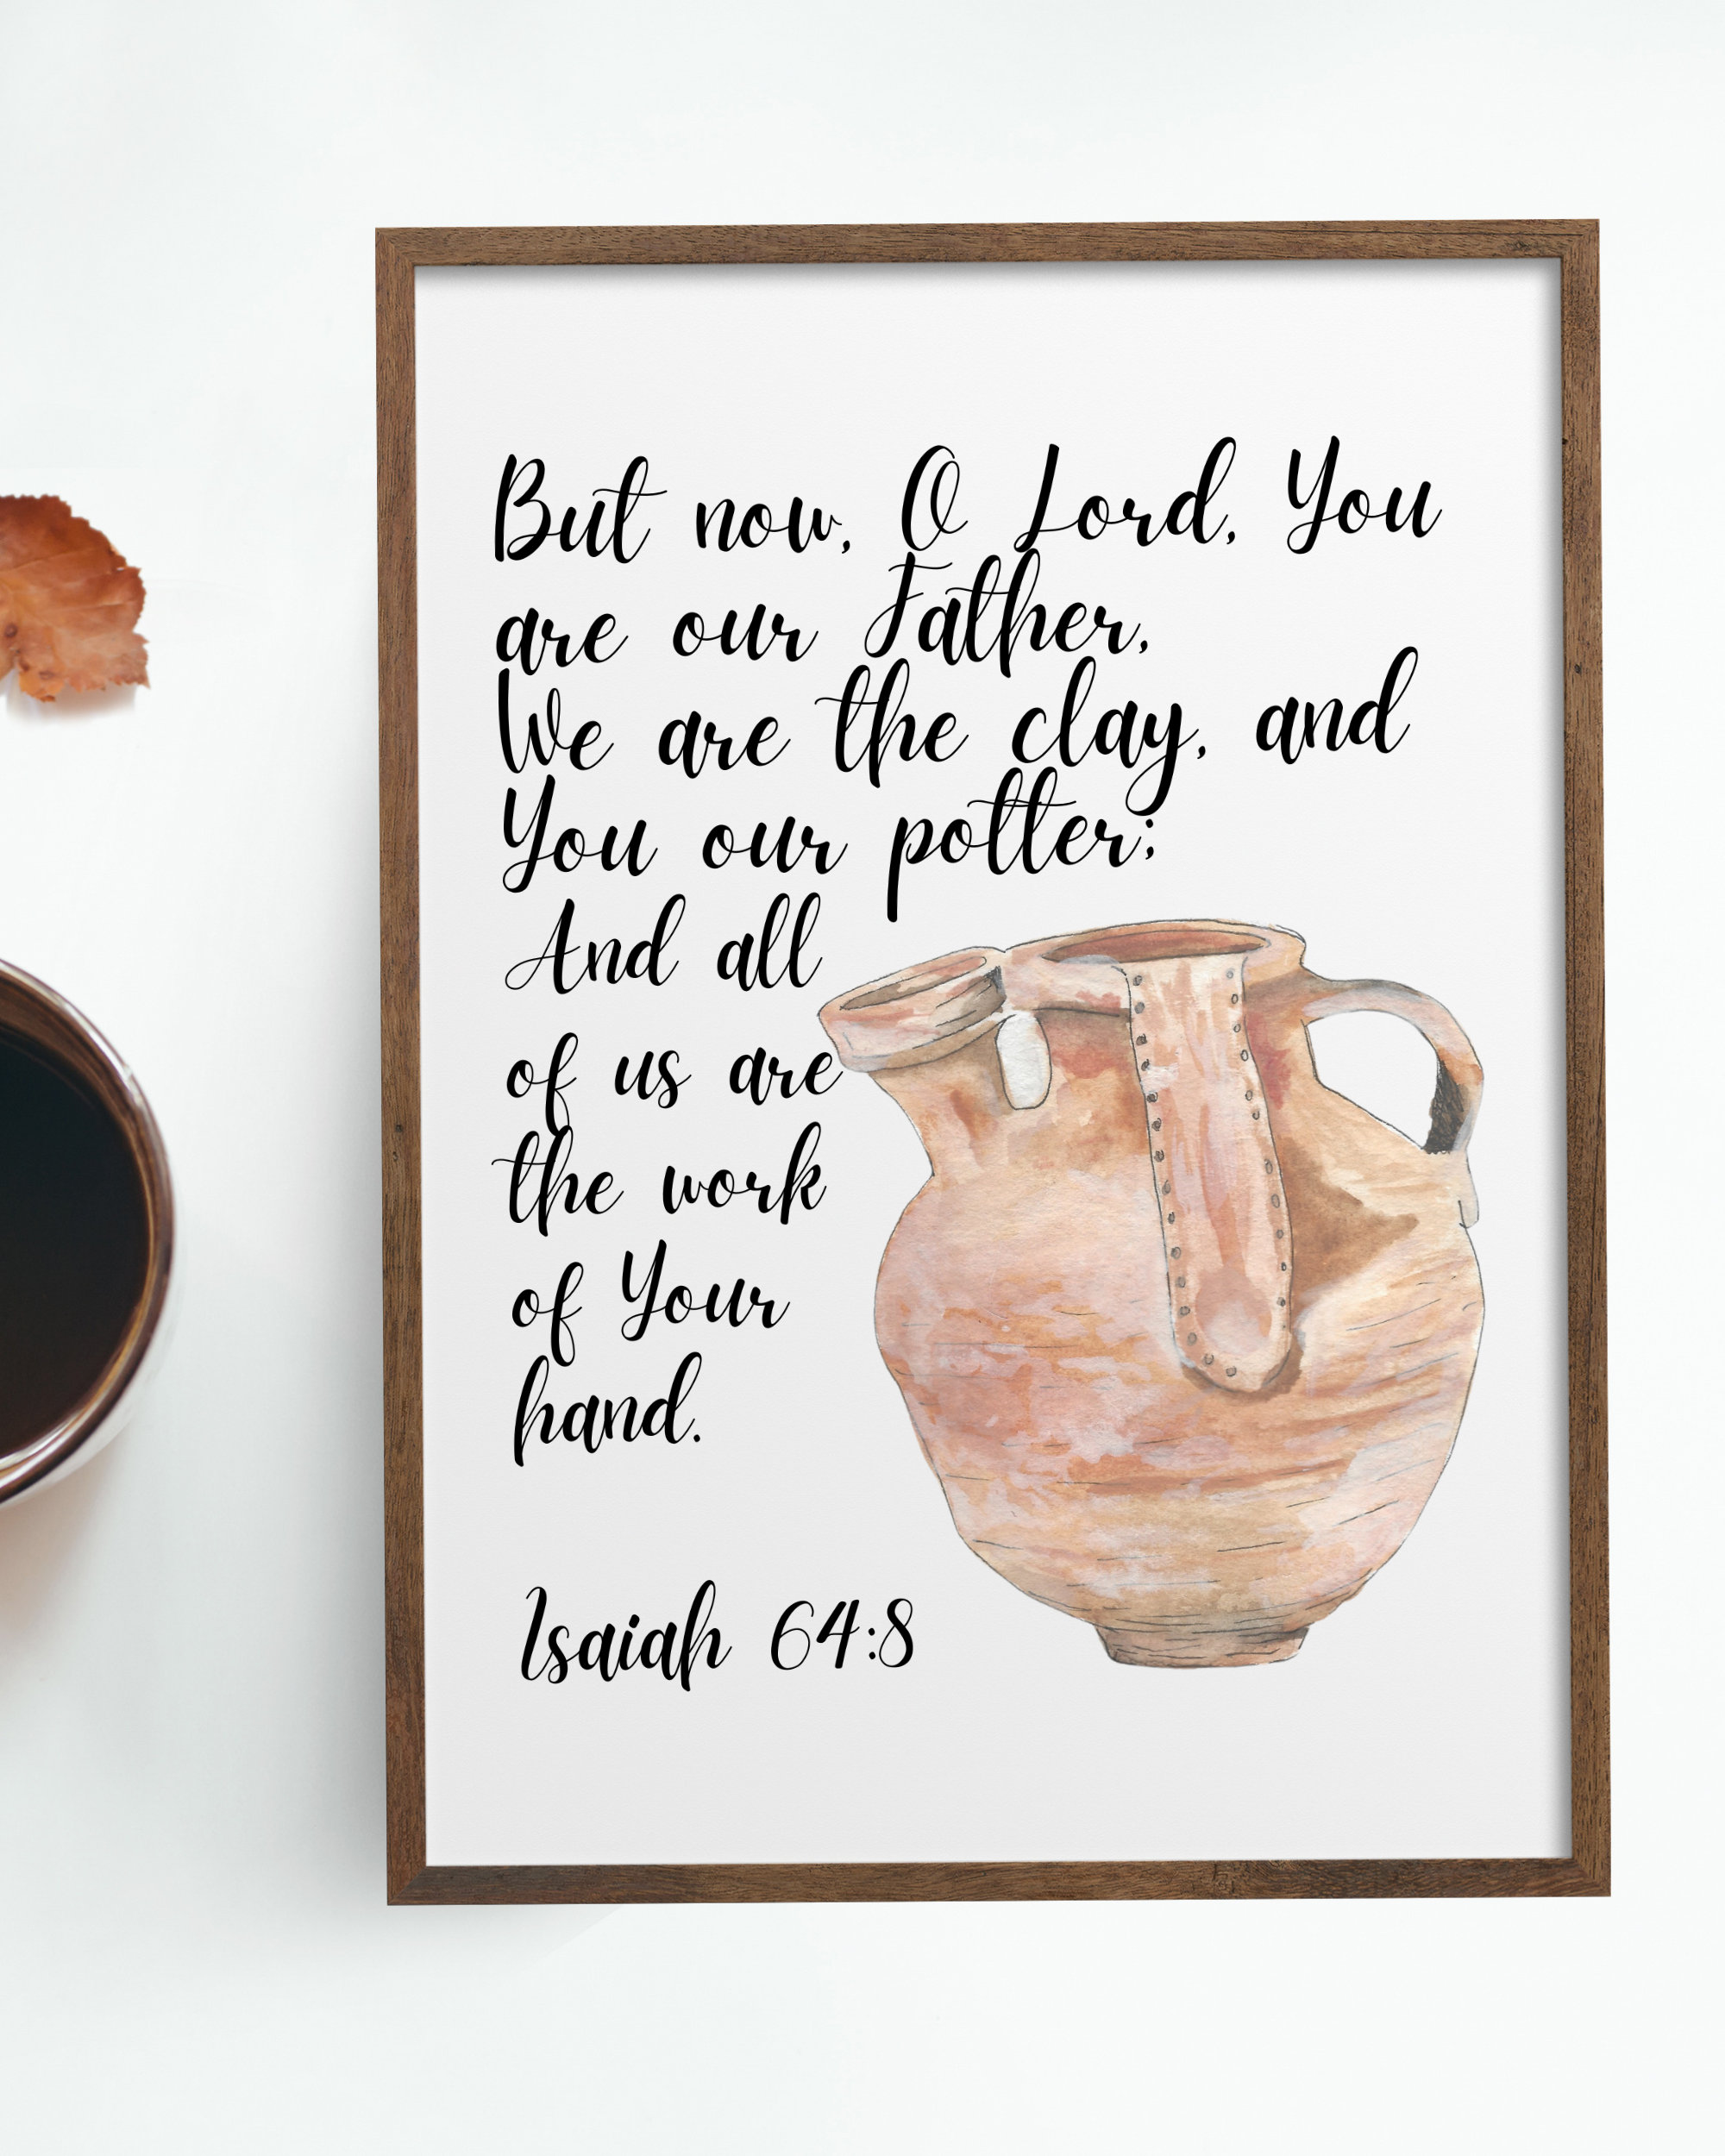 But now, O Lord, You
are our Father,
We are the clay, and
You our potter;
And all
of us are
the work
of Your
hand.
Isaiah 64:8